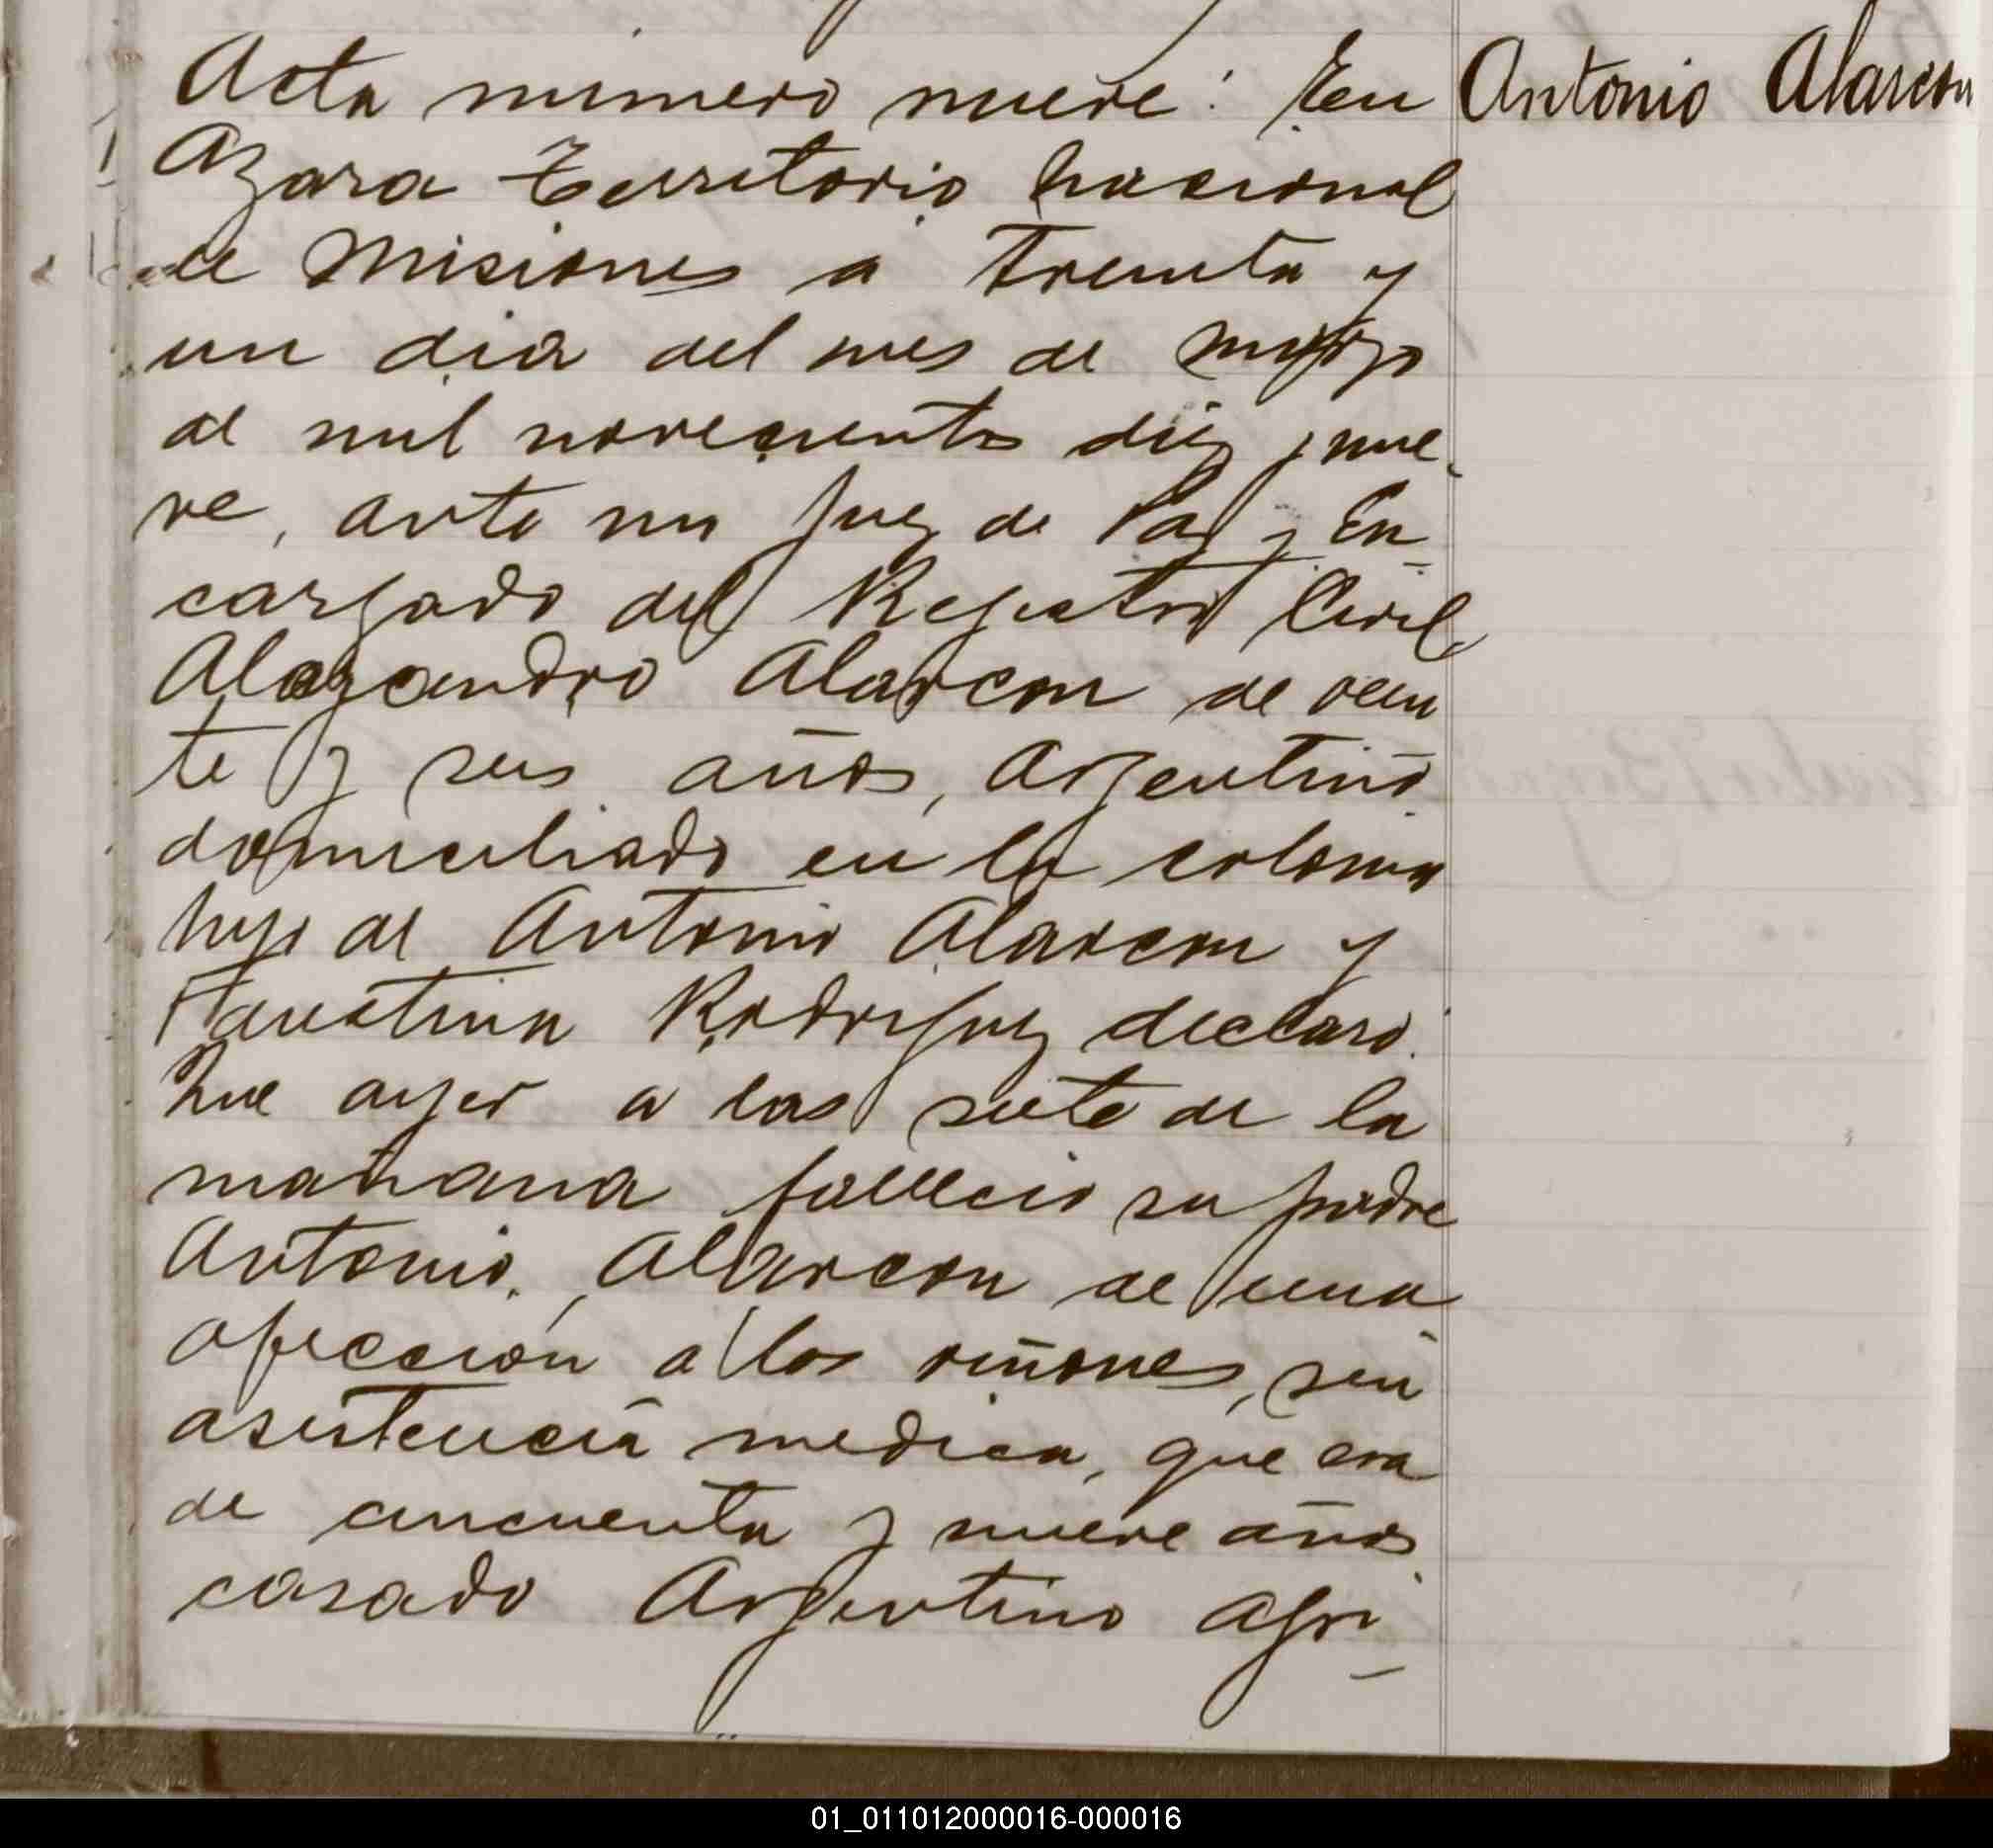 Acta numero nueve: En
Antonio Alarcon
Azara Territorio nacional
de Misiones a Treinta y
un dia del mes de marzo
de mil novecientos diez y nue-
ve, ante mi Juez de Paz y En-
cargado del Registro Civil,
Alejandro Alarcon de vein
te y seis años, Argentino
domiciliado en la colonia
hijo de Antonio Alarcon y
Faustina Rodriguez declaró:
Que ayer a las siete de la
mañana fallecio su padre
Antonio Alarcon de una
afeccion a los riñones, sin
asistencia medica, que era
de cincuenta y nueve años
casado Argentino Agri-
01_011012000016-000016